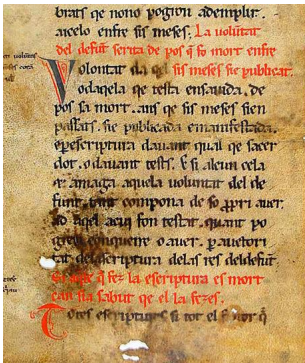 brats qe nono pogron ademplir.
aicelo enfre sis meses. La volūtat
del defūt serita de pos q̄ fo mort enfre
Volontat sis meses sie publicat.
Vodaqela qe testa ensavida. de
pos sa mort. ans qe sis meses sien
passats. sie publicada e manifestada.
e per escriptura davant qual qe sacer
dot. o davant tests. E si alcun cela
o amaga aquela voluntat del de
funt. tant compona de so propri aver.
qel aqui fon testat. quant po
gren conquerre o aver. per
tat escriptura delas res del defūt.
q̄ fez la escriptura es mort
can sia sabut qe el la fezes.
Totes escriptures si tot el